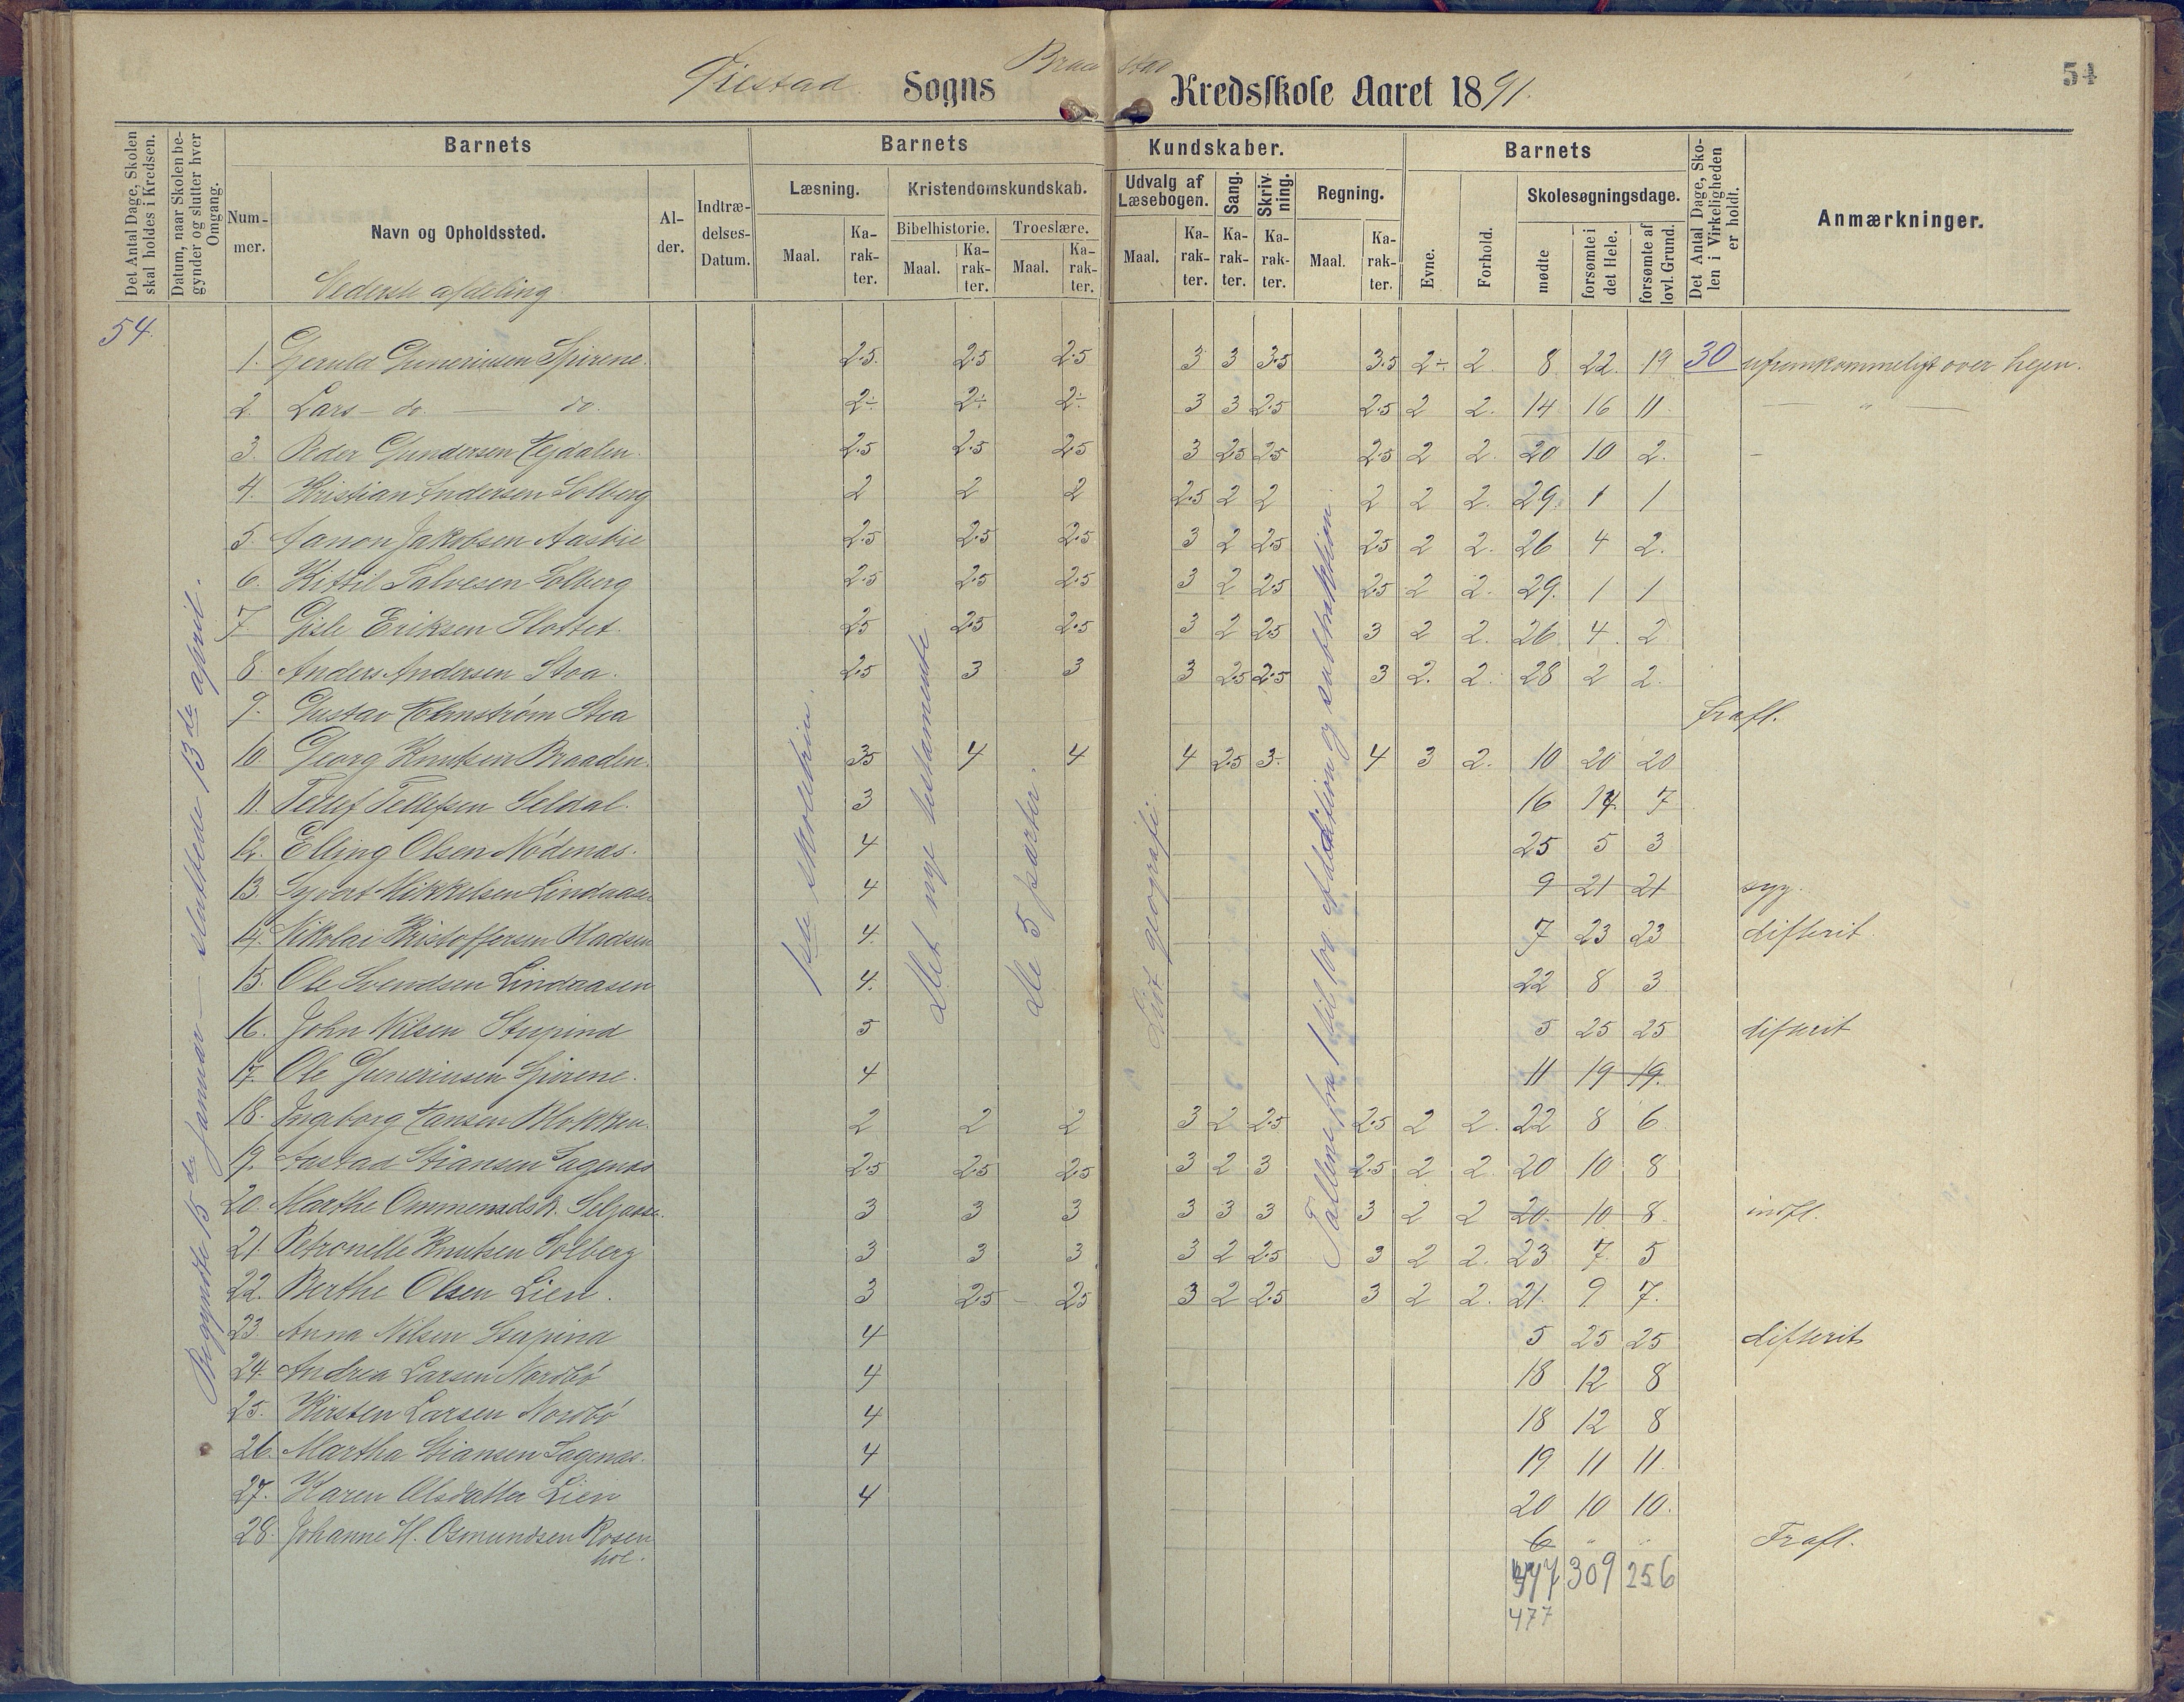 54
Sogns Kredsskole Aaret 1891.
Det Antal Dage, Skolen skal holdes i Kredsen.
Datum, naar Skolen begynder og slutter hver Omgang.
Barnets
Barnets Kundskaber.
Barnets
Det Antal Dage, Skolen i Virkeligheden er holdt.
Anmærkninger.
Nummer.
Navn og Opholdssted.
Alder.
Indtrædelses-Datum.
Læsning.
Kristendomskundskab.
Udvalg af Læsebogen.
Sang.
Skrivning.
Regning.
Evne.
Forhold.
Skolesøgningsdage.
Bibelhistorie.
Troeslære.
Maal. Karakter. Maal. Karakter. Maal. Karakter. Maal. Karakter. Karakter. Karakter. Maal. Karakter.
mødte
forsømte i det Hele.
forsømte af lovl. Grund.
Nederste afdeling
54.
Begyndte 15de januar — sluttede 13de april.
1ste skoletrin.
Det nye testamente
de 5 parter.
Lidt geografi.
Tallene fra 1 til 100 addition og subtraktion
1. Geruld Guneriusen Spirene. 2.5 2.5 2.5 3 3 3.5 3.5 2÷ 2. 8 22. 19 30 ufremkommeligt over hejen.
2. Lars — do. — do. 2÷ 2÷ 2÷ 3 3 2.5 2.5 2 2. 14 16 11 — " —
3. Peder Gundersen Hejdalen. 2.5 2.5 2.5 3 2.5 2.5 2.5 2 2. 20 10 2. –
4. Kristian Andersen Solberg 2 2 2 2.5 2 2 2 2 2. 29. 1 1
5. Aanon Jakobsen Aasbie 2.5 2.5 2.5 3 2 2.5 2.5 2 2. 26 4 2.
6. Kittil Salvesen Solberg 2.5 2.5 2.5 3 2 2.5 2.5 2 2. 29. 1 1
7. Gisle Eriksen Slottet. 2.5 2.5 2.5 3 2 2.5 3 2 2. 26 4. 2
8. Anders Andersen Stoa. 2.5 3 3 3 2.5 2.5 3 2. 2. 28 2 2.
9. Gustav Holmstrøm Stoa frafl.
10 Georg Knutsen Braaden. 3.5 4 4 4 2.5 3÷ 4 3 2. 10 20 20
11. Tellef Tellefsen Seldal. 3 16 14 7
12. Elling Olsen Nødenæs. 4 25 5 3
13. Syvert Mikkelsen Lindaasen 4 9 21 21 syg.
14. Nikolai Kristoffersen Pladsen 4. 7 23 23 difterit
15. Ole Svendsen Lindaasen 4. 22 8 3
16. John Nilsen Stupind 5 5 25 25 difterit
17. Ole Guneriusen Spirene. 4 11 19 19.
18. Ingeborg Hansen Klokken. 2 2 2 3 2 2.5 2.5 2 2. 22 8 6
19. Aastad Stiansen Sagenæs 2.5 2.5 2.5 3 2 3 2.5 2 2. 20 10 8
20. Marthe Ommundsdt. Seljaase. 3 3 3 3 3 3 3 2 2 20. 10 8 indfl.
21. Petronille Knutsen Solberg 3 3 3 3 2 2.5 3 2 2. 23 7 5
22. Berthe Olsen Lien. 3 2.5 – 2.5 3 2 2.5 3 2 2. 21. 9 7.
23. Anna Nilsen Stupind 4 5 25 25 difterit
24. Andrea Larsen Nordbø 4 18 12 8
25. Kirsten Larsen Nordbø 4 18 12 8
26. Martha Stiansen Sagenæs. 4 19 11 11
27. Karen Olsdatter Lien 4 20 10 10.
28. Johanne H. Osmundsen Rosen 6 " " Frafl.
hol.
309 256
477